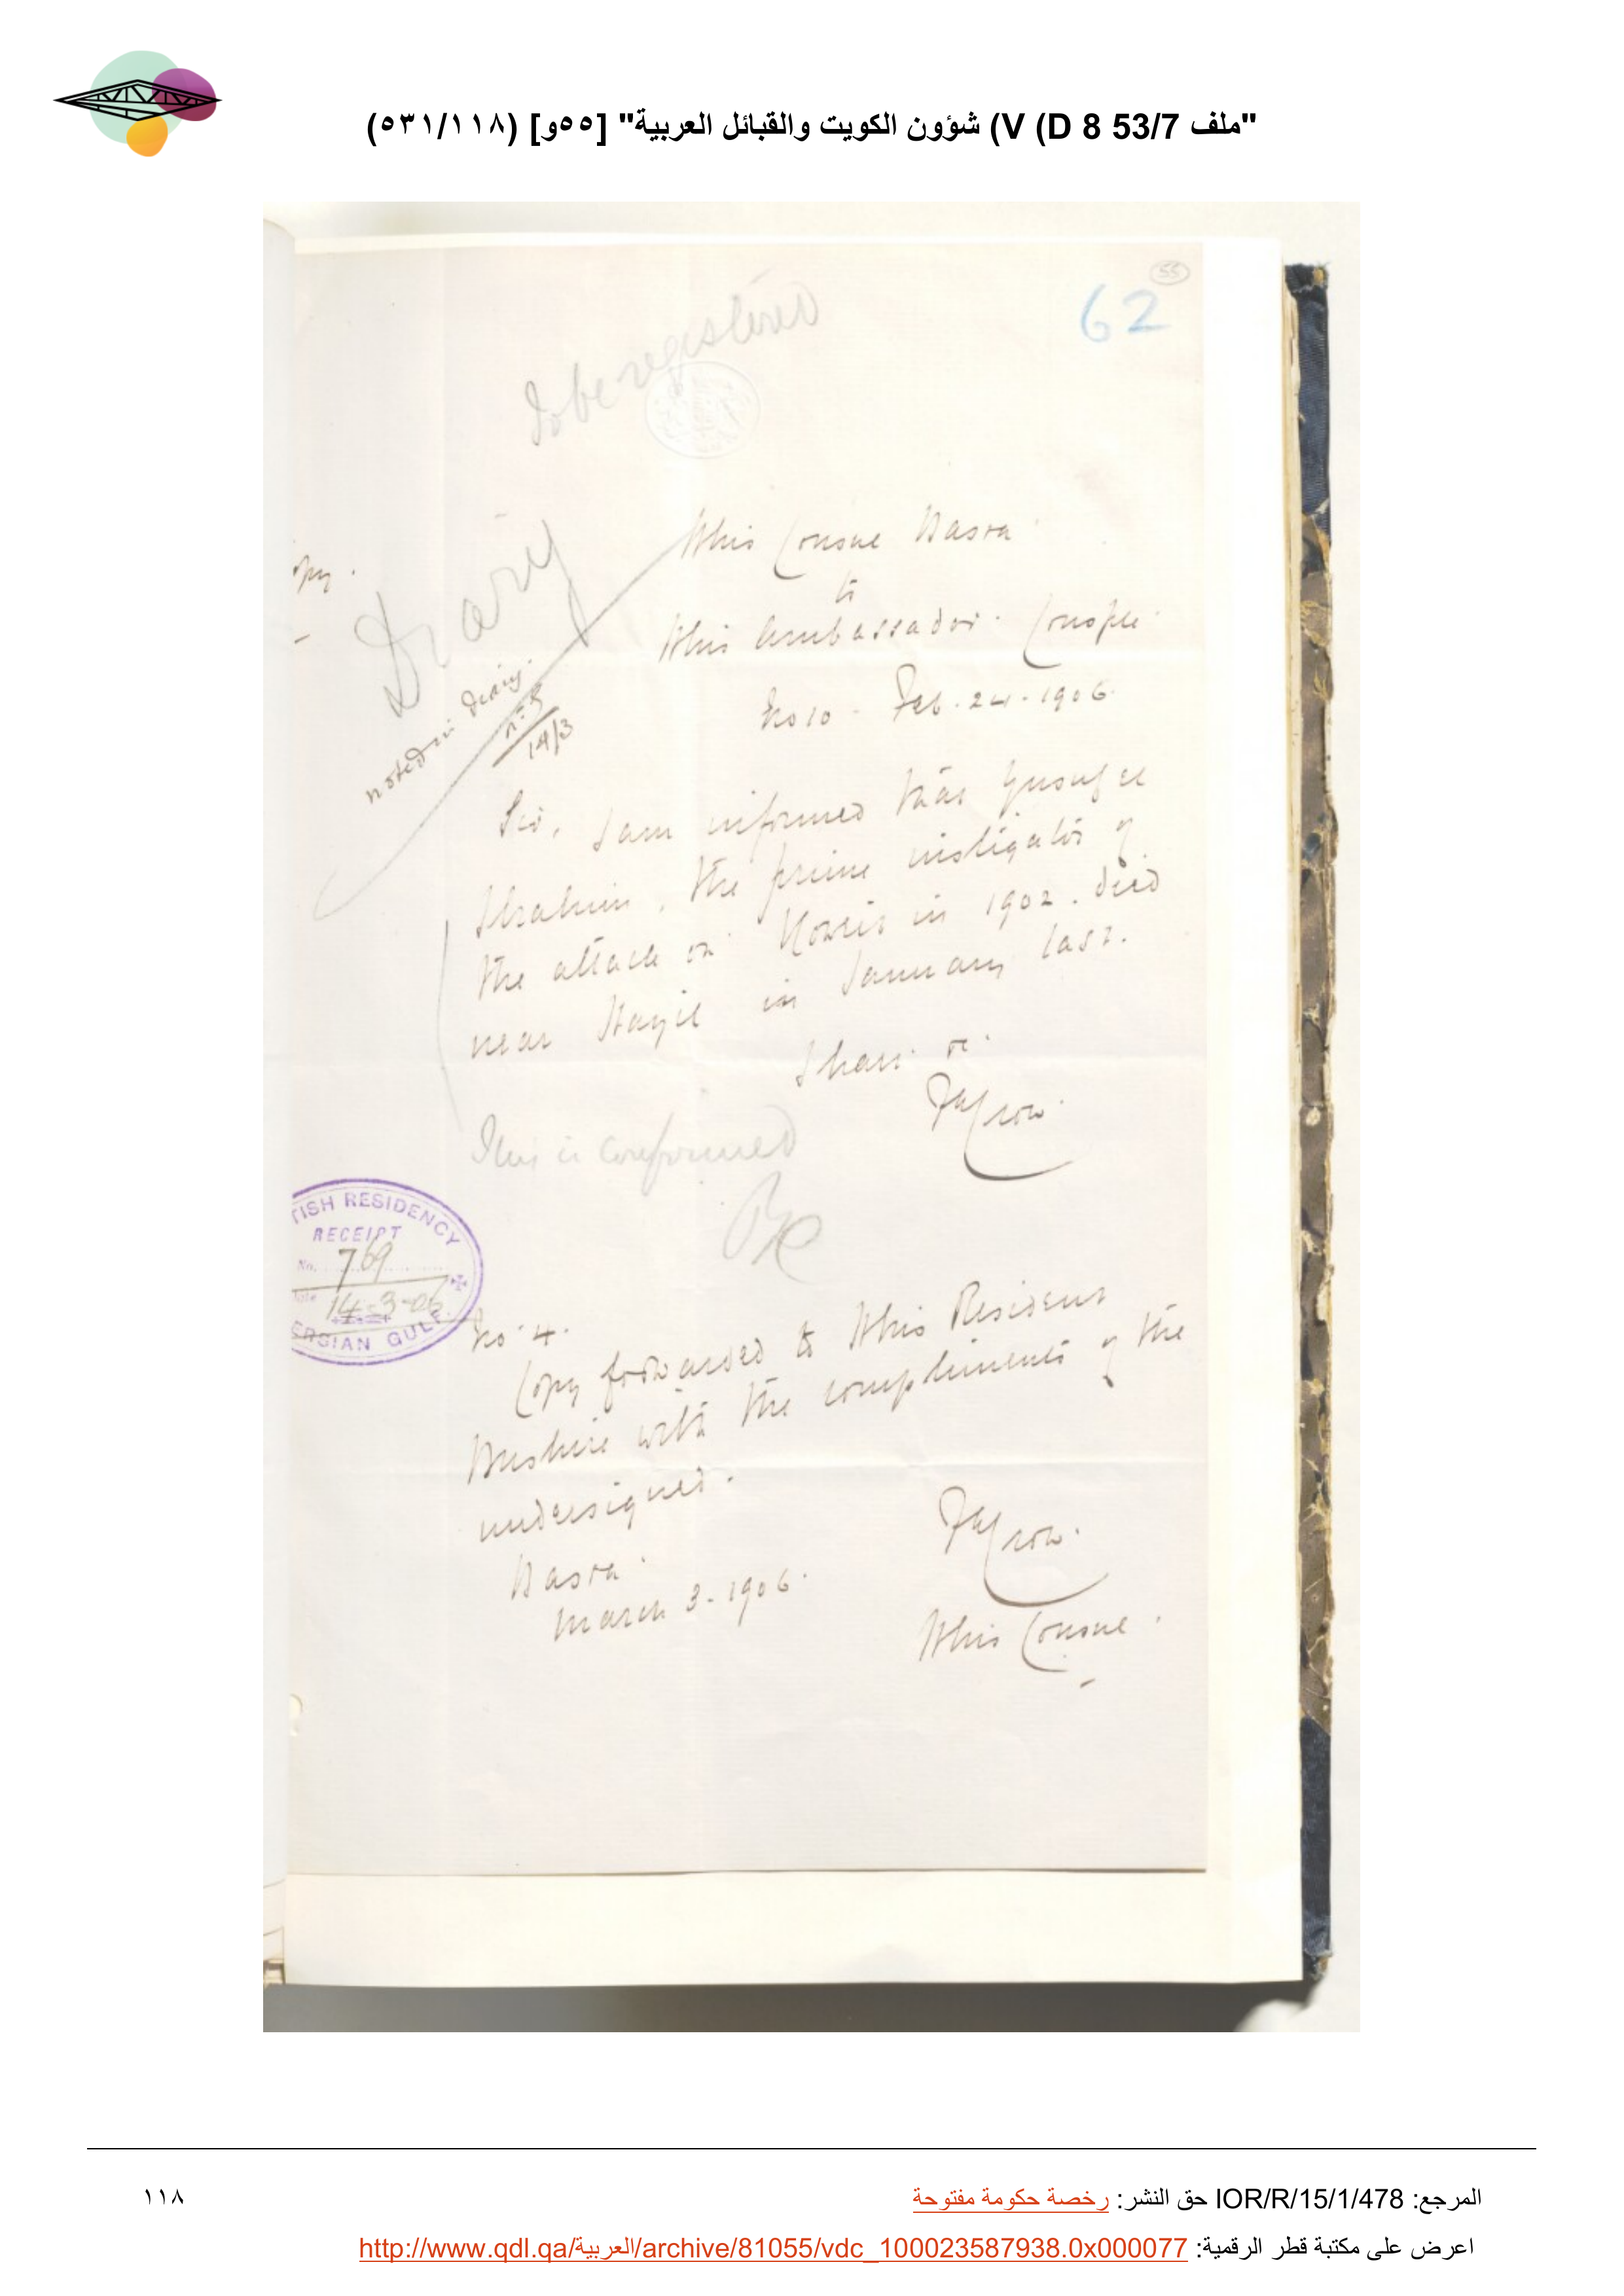 "ملف 53/7 V (D 8) شؤون الكويت والقبائل العربية" [٥٥و] (٥٣١/١١٨)
55
62
To be registered
opy.
Diary
noted in diary
No 5
14/3
HM's Consul Basra
to
HM's Ambassador. Conople
No 10 - Feb. 24. 1906.
Sir, I am informed that Yusuf el
Ibrahim, the prime instigator of
the attack on Koweit in 1902. died
near Hayil in January last.
I have &c.
FECrow.
This is confirmed
TISH RESIDENCY
RECEIPT
No. 769
Date 14-3-06
ERSIAN GULF
No 4.
Copy forwarded to HM's Resident
Bushire with the compliments of the
undersigned.
FECrow.
Basra
March 3-1906.
HM's Consul.
المرجع: IOR/R/15/1/478 حق النشر: رخصة حكومة مفتوحة
١١٨
اعرض على مكتبة قطر الرقمية: http://www.qdl.qa/العربية/archive/81055/vdc_100023587938.0x000077